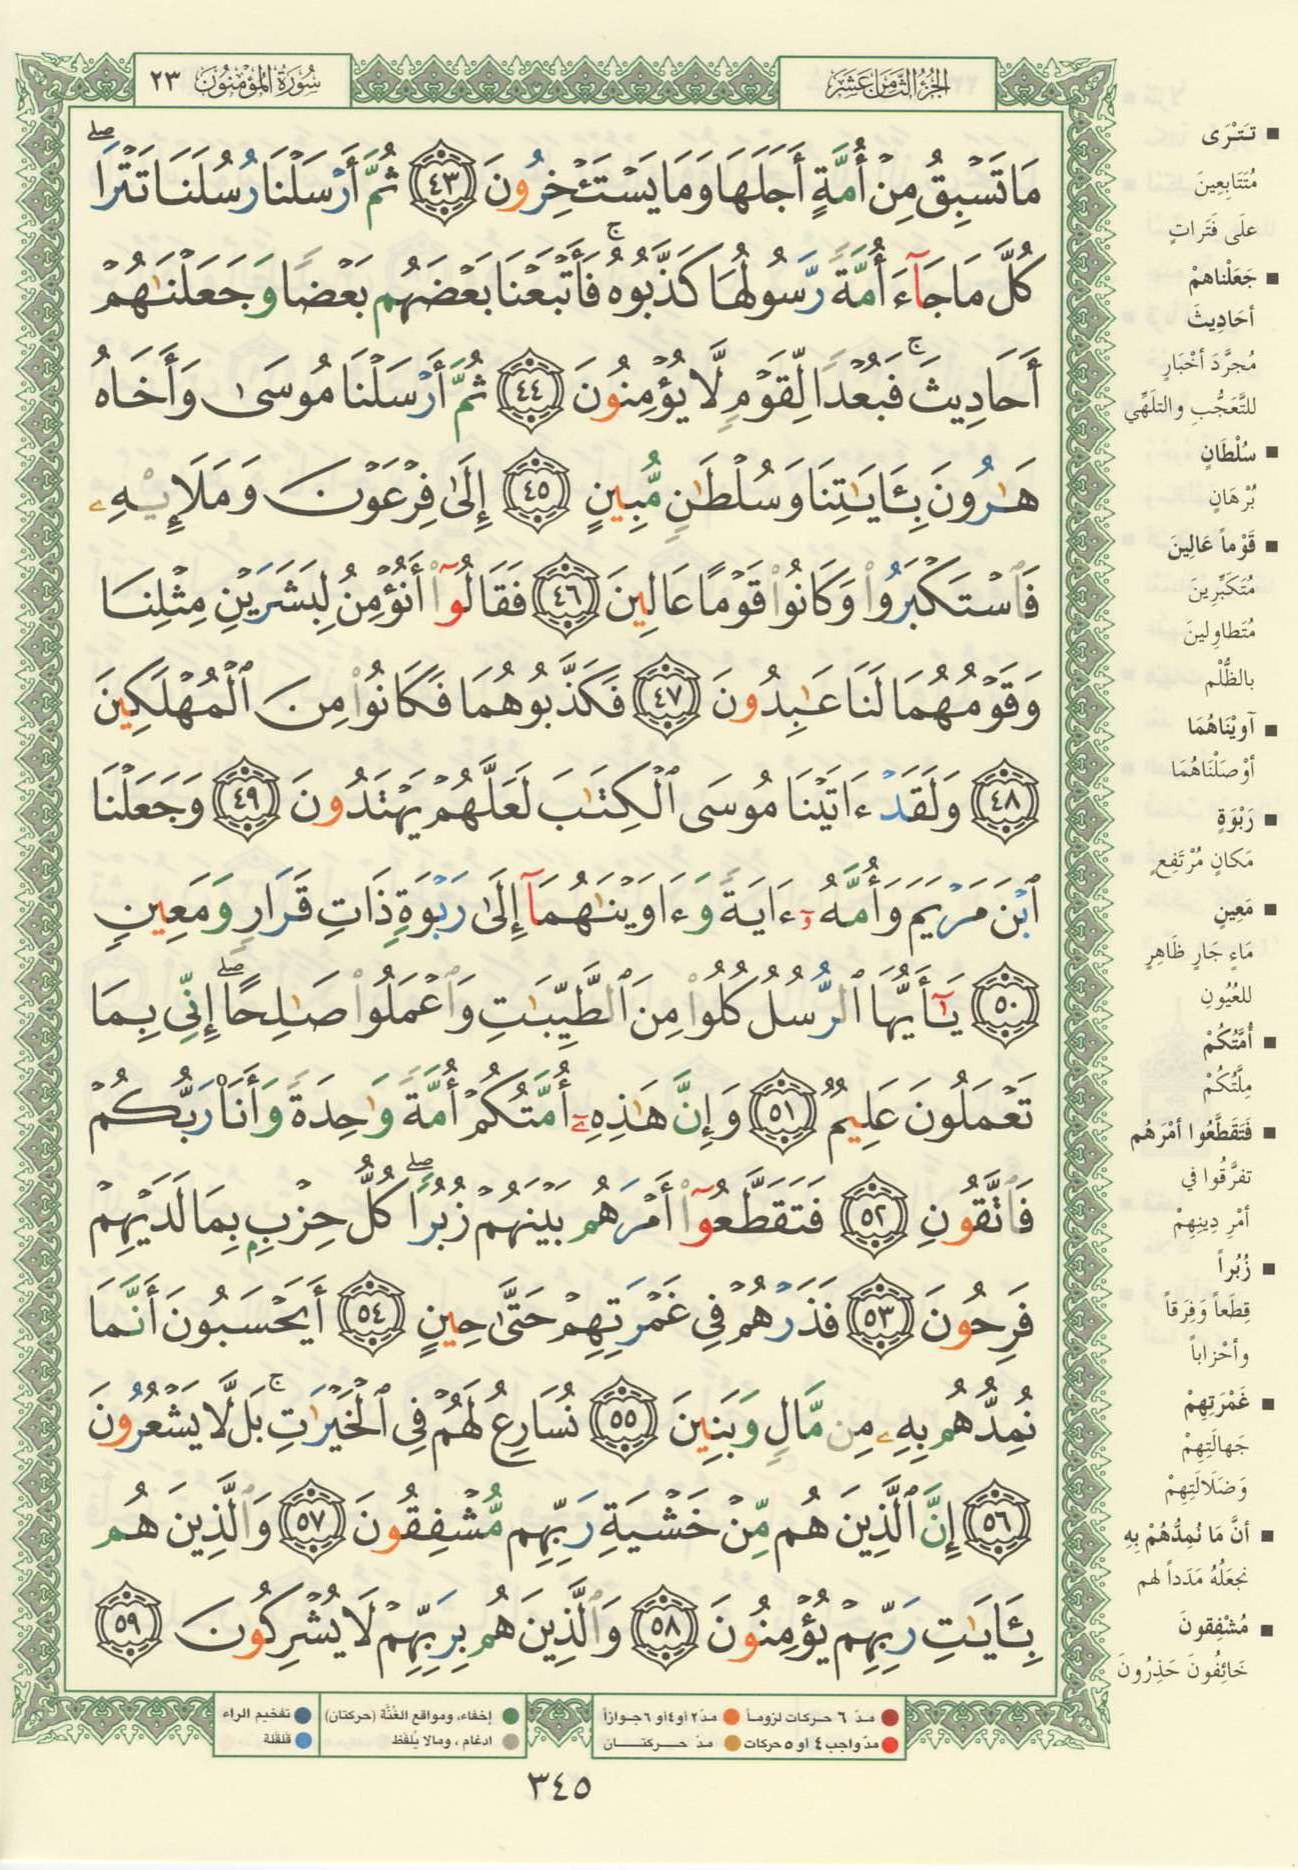 سُورَةُ المُؤْمِنُونَ ٢٣
الجُزْءُ الثَّامِنَ عَشَرَ
مَا تَسْبِقُ مِنْ أُمَّةٍ أَجَلَهَا وَمَا يَسْتَـْٔخِرُونَ ٤٣ ثُمَّ أَرْسَلْنَا رُسُلَنَا تَتْرَا ۖ
كُلَّ مَا جَآءَ أُمَّةً رَّسُولُهَا كَذَّبُوهُ ۚ فَأَتْبَعْنَا بَعْضَهُم بَعْضًا وَجَعَلْنَـٰهُمْ
أَحَادِيثَ ۚ فَبُعْدًا لِّقَوْمٍ لَّا يُؤْمِنُونَ ٤٤ ثُمَّ أَرْسَلْنَا مُوسَىٰ وَأَخَاهُ
هَـٰرُونَ بِـَٔايَـٰتِنَا وَسُلْطَـٰنٍ مُّبِينٍ ٤٥ إِلَىٰ فِرْعَوْنَ وَمَلَإِي۟هِۦ
فَٱسْتَكْبَرُوا۟ وَكَانُوا۟ قَوْمًا عَالِينَ ٤٦ فَقَالُوٓا۟ أَنُؤْمِنُ لِبَشَرَيْنِ مِثْلِنَا
وَقَوْمُهُمَا لَنَا عَـٰبِدُونَ ٤٧ فَكَذَّبُوهُمَا فَكَانُوا۟ مِنَ ٱلْمُهْلَكِينَ
٤٨ وَلَقَدْ ءَاتَيْنَا مُوسَى ٱلْكِتَـٰبَ لَعَلَّهُمْ يَهْتَدُونَ ٤٩ وَجَعَلْنَا
ٱبْنَ مَرْيَمَ وَأُمَّهُۥٓ ءَايَةً وَءَاوَيْنَـٰهُمَآ إِلَىٰ رَبْوَةٍ ذَاتِ قَرَارٍ وَمَعِينٍ
٥٠ يَـٰٓأَيُّهَا ٱلرُّسُلُ كُلُوا۟ مِنَ ٱلطَّيِّبَـٰتِ وَٱعْمَلُوا۟ صَـٰلِحًا ۖ إِنِّى بِمَا
تَعْمَلُونَ عَلِيمٌ ٥١ وَإِنَّ هَـٰذِهِۦٓ أُمَّتُكُمْ أُمَّةً وَٰحِدَةً وَأَنَا۠ رَبُّكُمْ
فَٱتَّقُونِ ٥٢ فَتَقَطَّعُوٓا۟ أَمْرَهُم بَيْنَهُمْ زُبُرًا ۖ كُلُّ حِزْبٍۭ بِمَا لَدَيْهِمْ
فَرِحُونَ ٥٣ فَذَرْهُمْ فِى غَمْرَتِهِمْ حَتَّىٰ حِينٍ ٥٤ أَيَحْسَبُونَ أَنَّمَا
نُمِدُّهُم بِهِۦ مِن مَّالٍ وَبَنِينَ ٥٥ نُسَارِعُ لَهُمْ فِى ٱلْخَيْرَٰتِ ۚ بَل لَّا يَشْعُرُونَ
٥٦ إِنَّ ٱلَّذِينَ هُم مِّنْ خَشْيَةِ رَبِّهِم مُّشْفِقُونَ ٥٧ وَٱلَّذِينَ هُم
بِـَٔايَـٰتِ رَبِّهِمْ يُؤْمِنُونَ ٥٨ وَٱلَّذِينَ هُم بِرَبِّهِمْ لَا يُشْرِكُونَ ٥٩
■ تَتْرَى
مُتَتَابِعِينَ
عَلَى فَتَراتٍ
■ جَعَلْناهمْ
أحَادِيثَ
مُجرَّدَ أخْبَارٍ
للتَّعَجُّبِ والتلَهِّي
■ سُلْطَانٍ
بُرْهَانٍ
■ قَوْماً عَالِينَ
مُتَكَبِّرِينَ
مُتَطاوِلِينَ
بالظُّلْم
■ آوَيْنَاهُمَا
أوْصَلْنَاهُمَا
■ رَبْوَةٍ
مَكانٍ مُرْتَفِعٍ
■ مَعِينٍ
مَاءٍ جَارٍ ظَاهِرٍ
للعُيُونِ
■ أُمَّتُكُمْ
مِلَّتُكُمْ
■ فَتَقَطَّعُوا أمْرَهُم
تفرَّقُوا في
أمْرِ دِينِهِمْ
■ زُبُراً
قِطَعاً وَفِرَقاً
وأحْزاباً
■ غَمْرَتِهِمْ
جَهالَتِهِمْ
وَضَلَالَتِهِمْ
■ أنَّ مَا نُمِدُّهُمْ بِهِ
نجعَلُهُ مَدَداً لهم
■ مُشْفِقونَ
خَائِفُونَ حَذِرُونَ
مدّ ٦ حركات لزوماً
مدّ٢ أو٤ أو ٦ جوازاً
مدّ واجب ٤ أو ٥ حركات
مدّ حركتان
إخفاء، ومواقع الغُنَّة (حركتان)
ادغام ، ومالا يُلفَظ
تفخيم الراء
قلقلة
٣٤٥